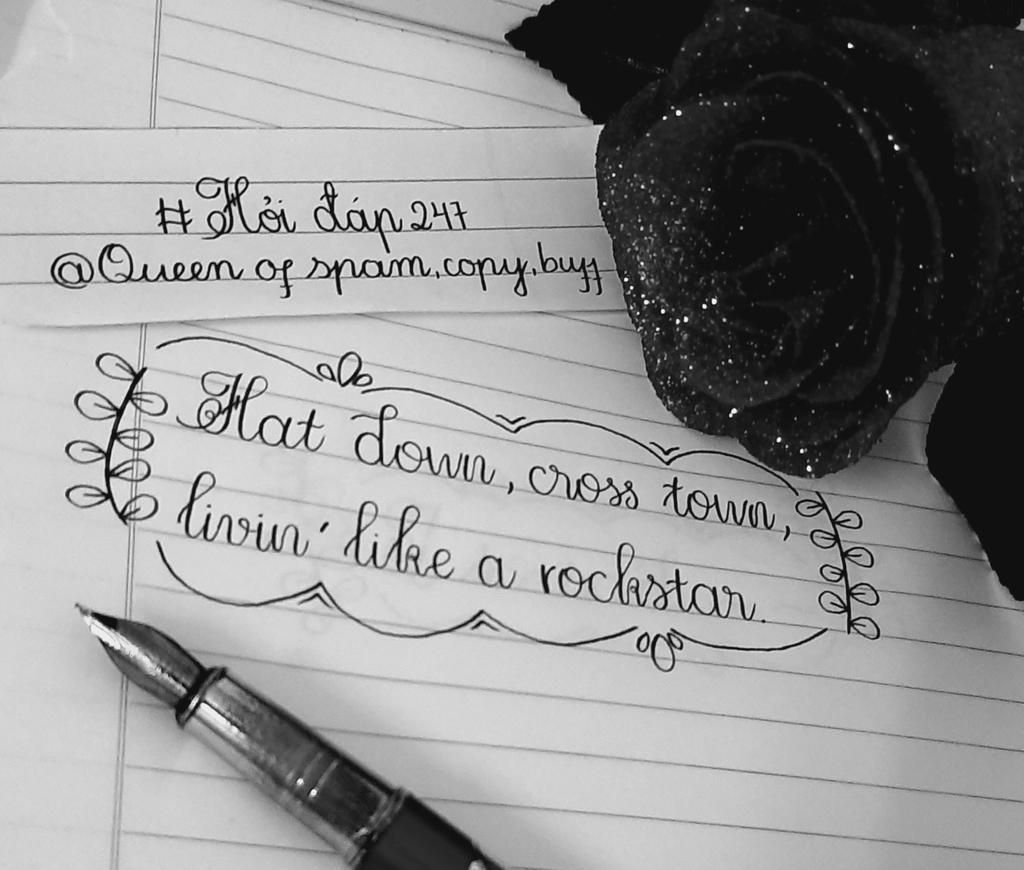 # Hỏi đáp 247
@Queen of spam, copy, buff
Hat down, cross town,
livin' like a rockstar.